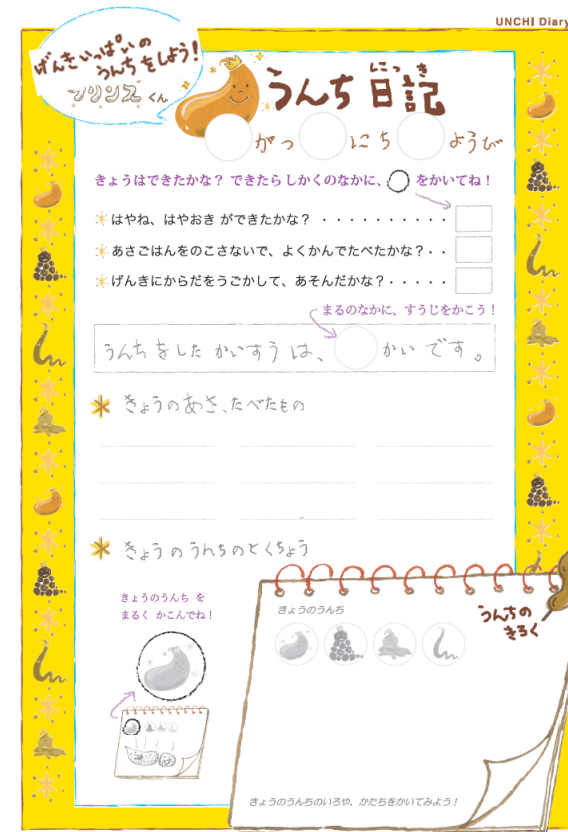 UNCHI Diary
げんきいっぱいの
うんちをしよう!
プリンスくん
うんち日記
にっき
がつ にち ようび
きょうはできたかな? できたら しかくのなかに、 をかいてね!
はやね、はやおき ができたかな? ・・・・・・・・・・
あさごはんをのこさないで、よくかんでたべたかな?・・
げんきにからだをうごかして、あそんだかな?・・・・・
まるのなかに、すうじをかこう!
うんちをした かいすう は、 かい です。
きょうのあさ、たべたもの
きょうのうんちのとくちょう
きょうのうんち を
まるく かこんでね!
きょうのうんち
うんちの
きろく
きょうのうんちのいろや、かたちをかいてみよう!